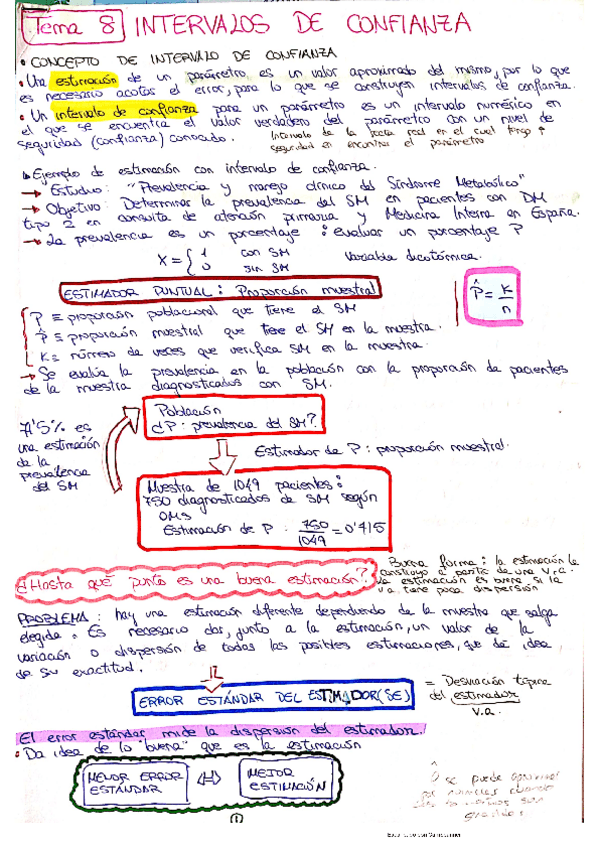 Tema 8 INTERVALOS DE CONFIANZA
• CONCEPTO DE INTERVALO DE CONFIANZA
• Una estimación de un parámetro es un valor aproximado del mismo, por lo que
es necesario acotar el error, para lo que se construyen intervalos de confianza.
• Un intervalo de confianza para un parámetro es un intervalo numérico en
el que se encuentra el valor verdadero del parámetro con un nivel de
seguridad (confianza) conocido.
Intervalo de la recta real en el cual tengo
seguridad en encontrar el parámetro
Ejemplo de estimación con intervalo de confianza.
→ Estudio: "Prevalencia y manejo clínico del Síndrome Metabólico"
→ Objetivo: Determinar la prevalencia del SM en pacientes con DM
tipo 2 en consulta de atención primaria y Medicina Interna en España.
→ La prevalencia es un porcentaje: evaluar un porcentaje P
X = { 1 con SM
0 sin SM
Variable dicotómica.
ESTIMADOR PUNTUAL: Proporción muestral
P̂ = k/n
P ≡ proporción poblacional que tiene el SM
P̂ ≡ proporción muestral que tiene el SM en la muestra.
K ≡ número de veces que verifica SM en la muestra.
→ Se evalúa la prevalencia en la población con la proporción de pacientes
de la muestra diagnosticados con SM.
Población
¿P: prevalencia del SM?
71'5% es
una estimación
de la
prevalencia
del SM
Estimador de P: proporción muestral.
Muestra de 1049 pacientes:
750 diagnosticados de SM según
OMS
Estimación de P: 750/1049 = 0'715
¿Hasta qué punto es una buena estimación?
Buena forma: la estimación la
construyo a partir de una v.a.
la estimación es buena si la
v.a. tiene poca dispersión
PROBLEMA: hay una estimación diferente dependiendo de la muestra que salga
elegida. Es necesario dar, junto a la estimación, un valor de la
variación o dispersión de todas las posibles estimaciones, que dé idea
de su exactitud.
ERROR ESTÁNDAR DEL ESTIMADOR (SE)
= Desviación típica
del estimador
v.a.
El error estándar mide la dispersión del estimador.
• Da idea de lo "buena" que es la estimación
MENOR ERROR
ESTÁNDAR
⇔
MEJOR
ESTIMACIÓN
se puede aproximar
por
cuando
son
grandes
1